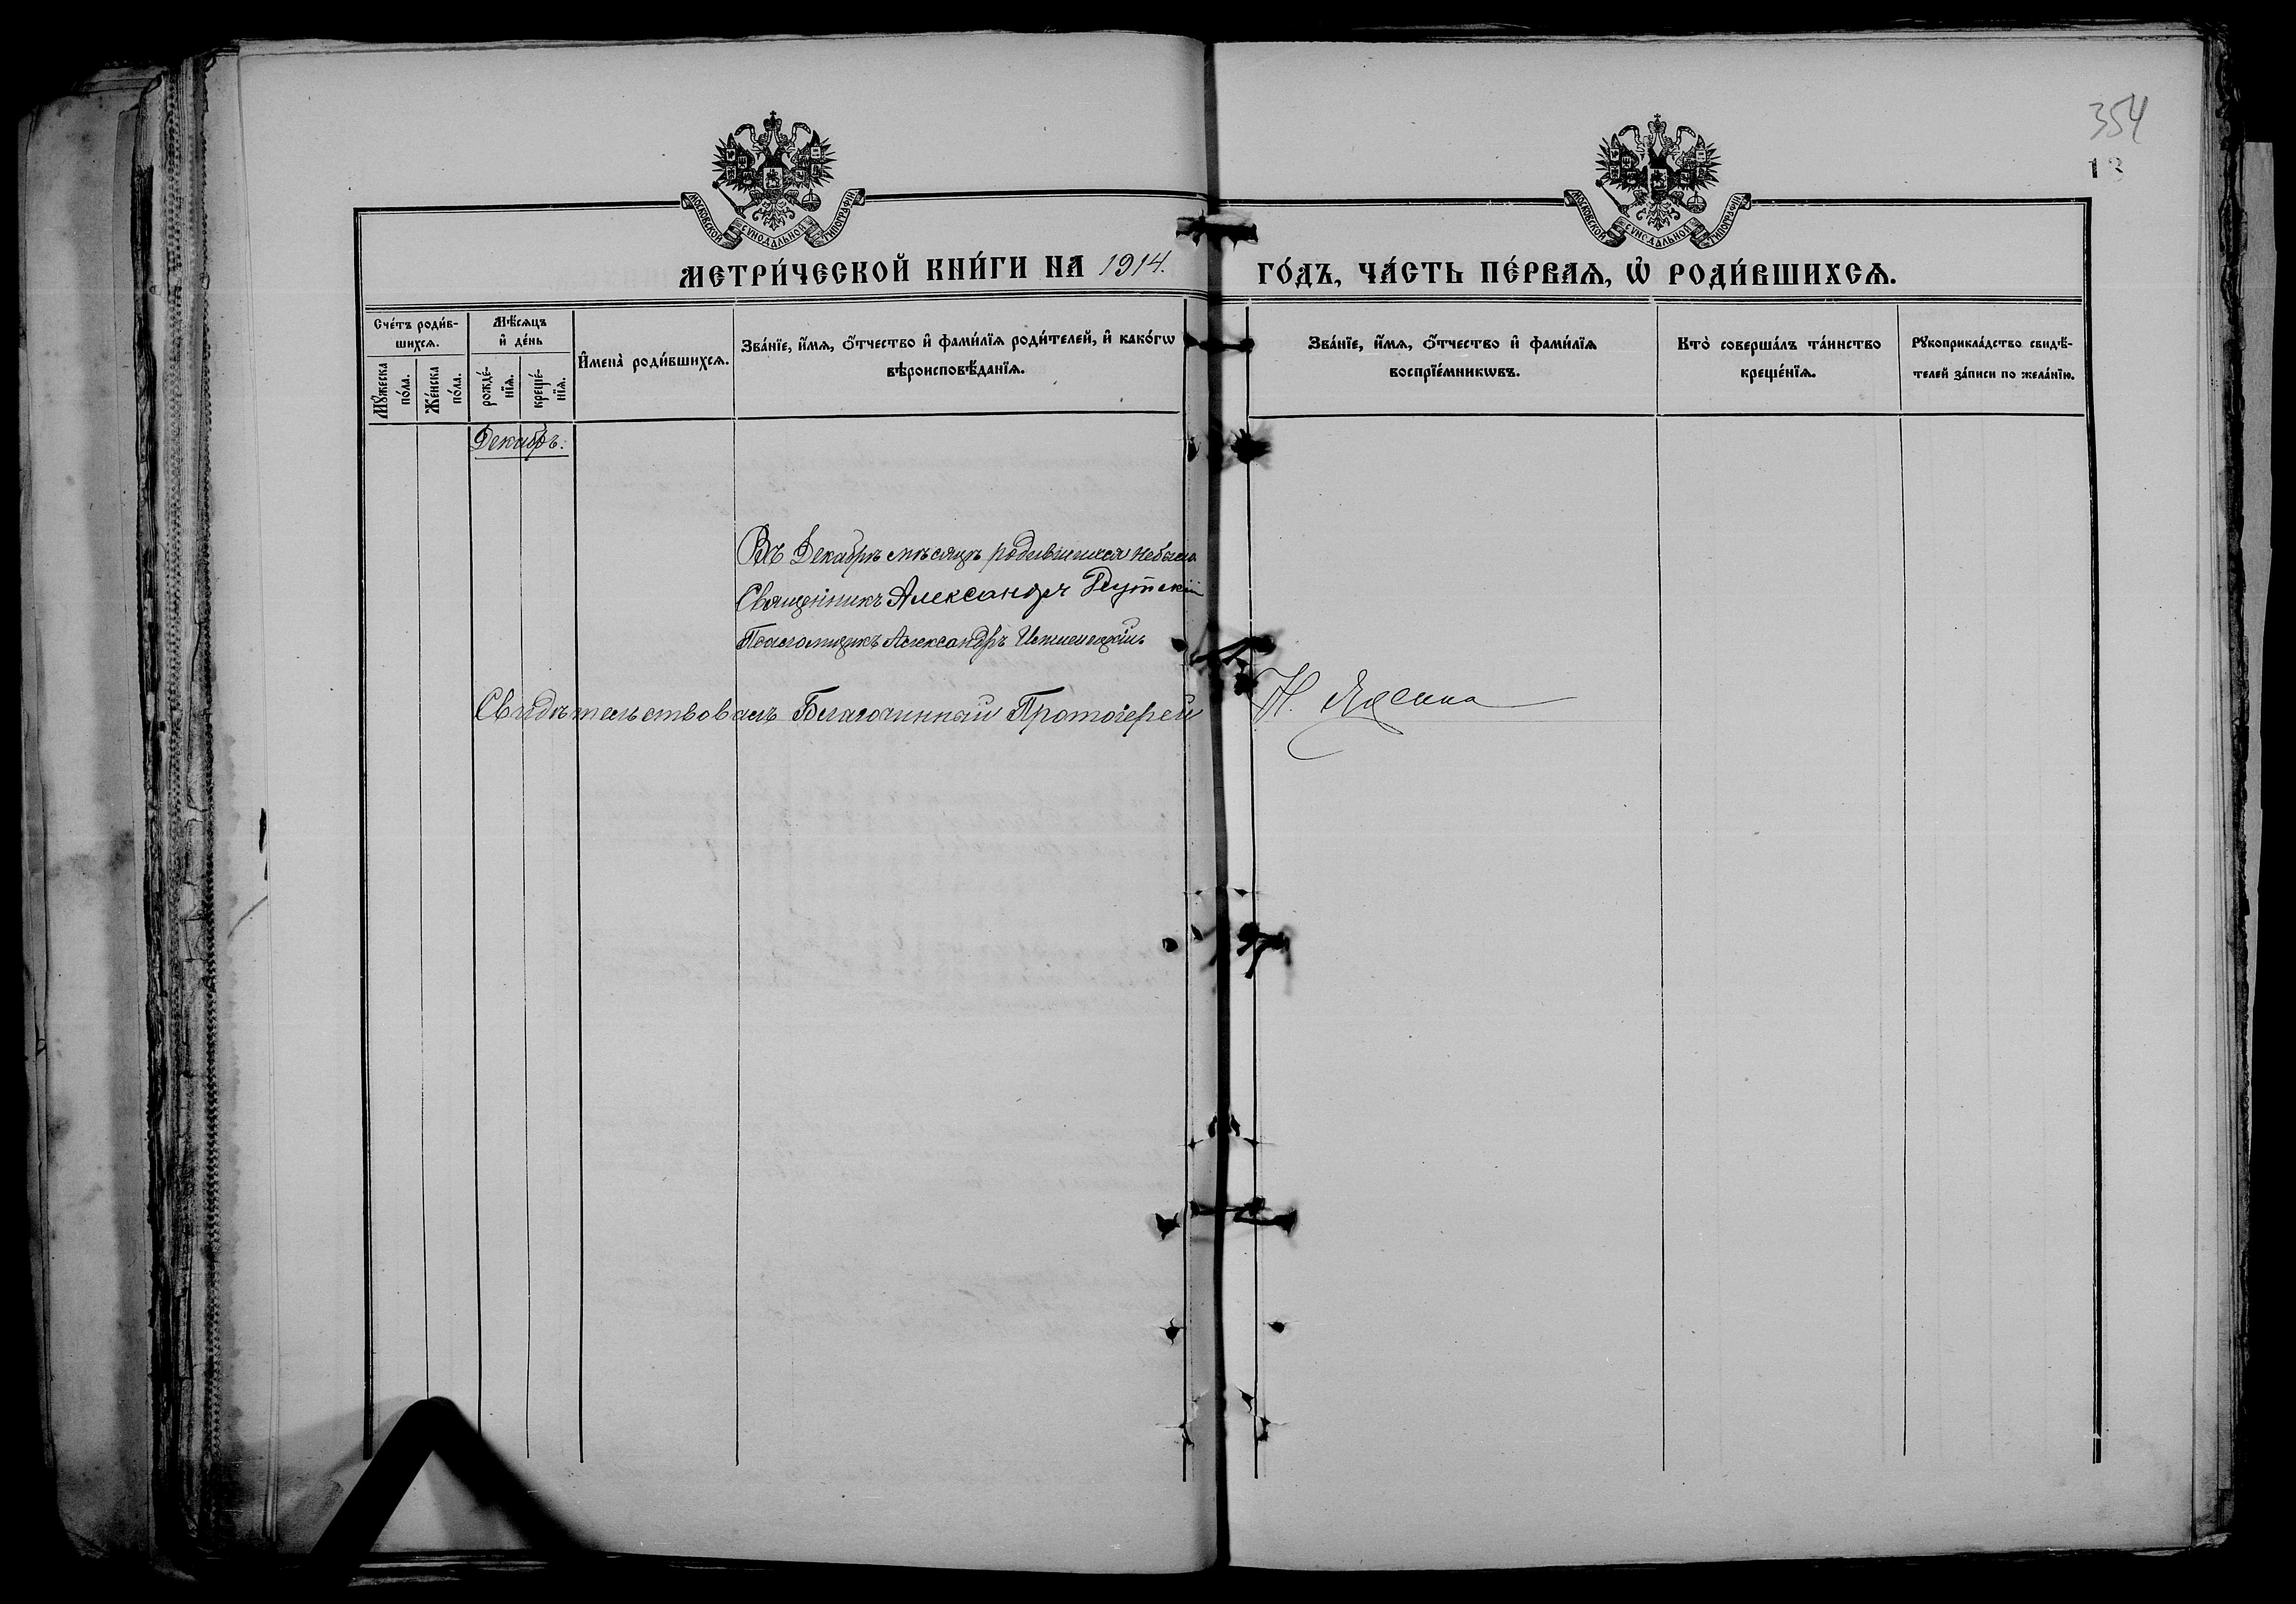 354
13
МОСКОВСКОЙ СѴНОДАЛЬНОЙ ТИПОГРАФІИ
МОСКОВСКОЙ СѴНОДАЛЬНОЙ ТИПОГРАФІИ
МЕТРИ́ЧЕСКОЙ КНИ́ГИ НА 1914. ГО́ДЪ, ЧА́СТЬ ПЕ́РВАѦ, Ѽ РОДИ́ВШИХСѦ.
Сче́тъ роди́в-
шихсѧ.
Мꙋ́жеска
по́ла.
Же́нска
по́ла.
Мѣ́сѧцъ
и҆ де́нь
рожде́-
нїѧ.
креще́-
нїѧ.
И҆мена̀ роди́вшихсѧ.
Зва́нїе, и҆́мѧ, ѻ҆́тчество и҆ фами́лїѧ роди́телей, и҆ како́гѡ
вѣроисповѣ́данїѧ.
Зва́нїе, и҆́мѧ, ѻ҆́тчество и҆ фами́лїѧ
воспрїе́мникѡвъ.
Кто̀ соверша́лъ та́инство
креще́нїѧ.
Рꙋкоприкла́дство свидѣ́-
телей за́писи по жела́нїю.
Декабрь.
Въ Декабрѣ мѣсяцѣ родившихся небыло
Священникъ Александръ
Псаломщикъ Александръ
Свидѣтельствовалъ Благочинный Протоіерей Н.